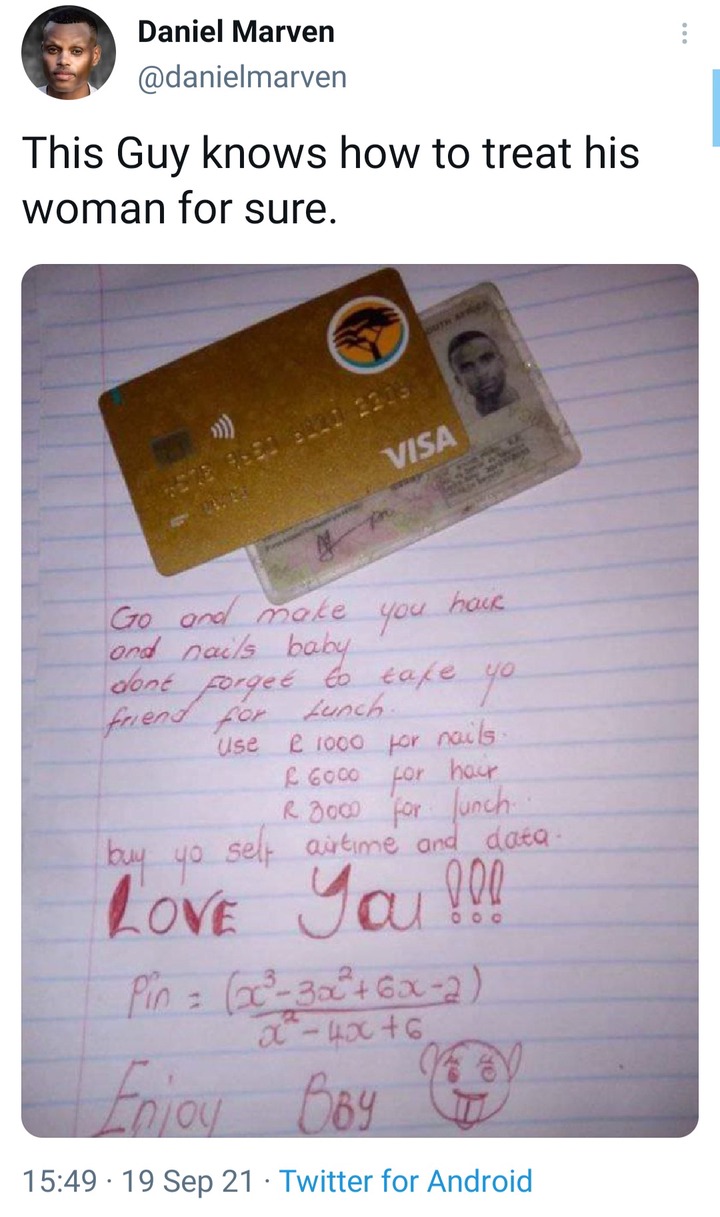 Daniel Marven
@danielmarven
This Guy knows how to treat his
woman for sure.
SOUTH AFRICA
VISA
Go and make you hair
and nails baby
dont forget to take yo
friend for Lunch.
use R 1000 for nails.
R 6000 for hair
R 3000 for lunch.
buy yo self airtime and data.
LOVE You !!!
Pin = (x³-3x²+6x-2)
x²-4x+6
Enjoy BBY
15:49 · 19 Sep 21 · Twitter for Android